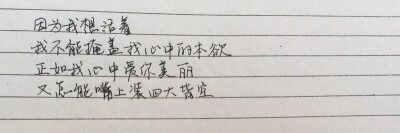 因为我想活着
我不能掩盖我心中的本欲
正如我心中爱你美丽
又怎能嘴上装四大皆空